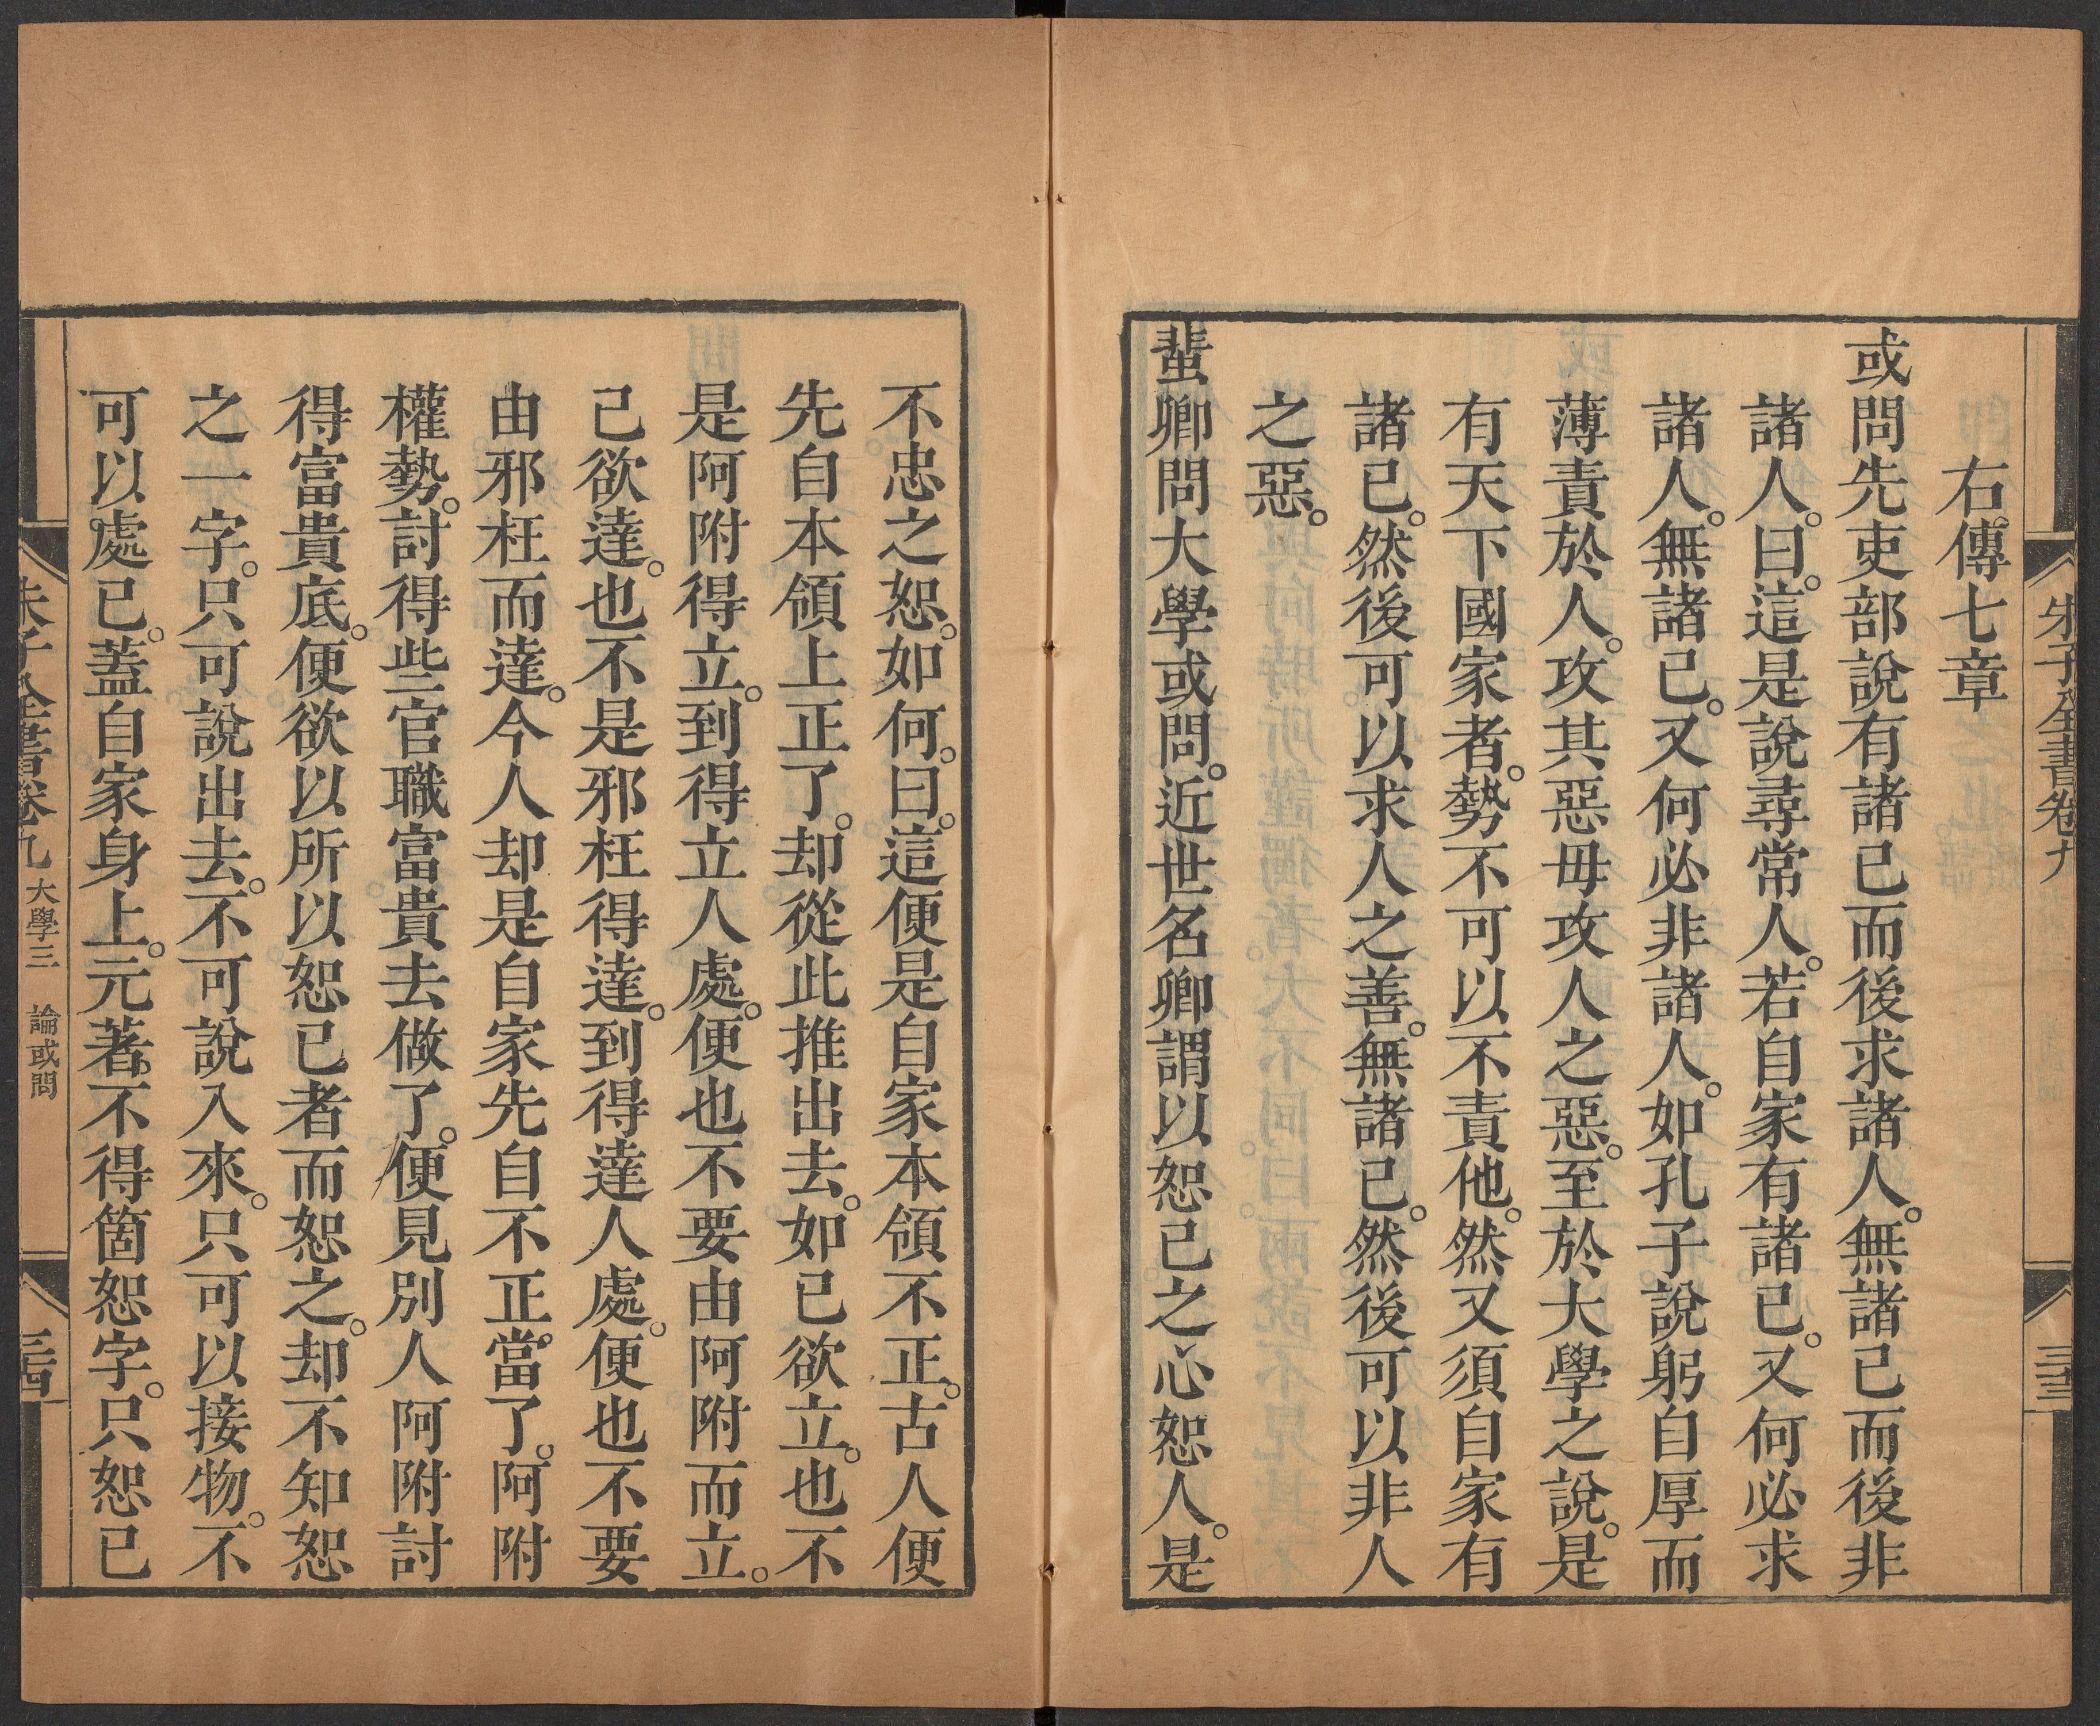 朱子全書卷九
三十三
右傳七章
或問先吏部說有諸己而後求諸人。無諸己而後非
諸人。曰。這是說尋常人。若自家有諸己。又何必求
諸人。無諸己。又何必非諸人。如孔子說躬自厚而
薄責於人。攻其惡毋攻人之惡。至於大學之說。是
有天下國家者。勢不可以不責他。然又須自家有
諸己。然後可以求人之善。無諸己。然後可以非人
之惡。
蜚卿問大學或問。近世名卿謂以恕己之心恕人。是
不忠之恕。如何。曰。這便是自家本領不正。古人便
先自本領上正了。却從此推出去。如己欲立。也不
是阿附得立。到得立人處。便也不要由阿附而立。
己欲達。也不是邪枉得達。到得達人處。便也不要
由邪枉而達。今人却是自家先自不正當了。阿附
權勢。討得些官職富貴去做了。便見別人阿附討
得富貴底。便欲以所以恕己者而恕之。却不知恕
之一字。只可說出去。不可說入來。只可以接物。不
可以處己。蓋自家身上。元著不得箇恕字。只恕己
朱子全書卷九 大學三 論或問
三十四